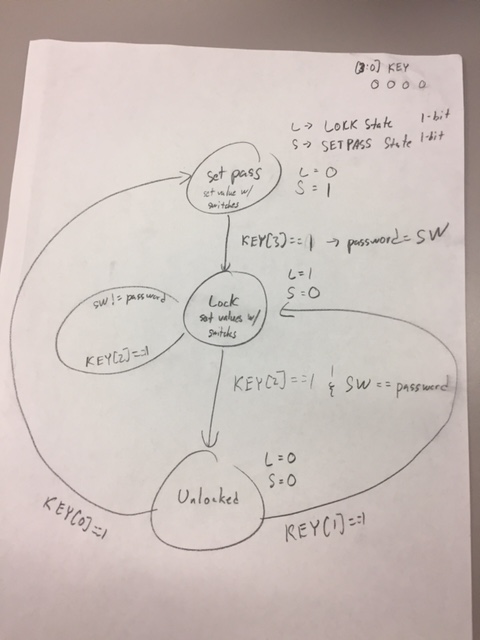 [3:0] KEY
0 0 0 0
L → LOCK State 1-bit
S → SETPASS State 1-bit
set pass
set value w/
switches
L = 0
S = 1
KEY[3]==1 → password = SW
L=1
S=0
Lock
set values w/
switches
SW != password
KEY[2]==1
KEY[2]==1 & SW == password
L=0
S=0
Unlocked
KEY[0]==1
KEY[1]==1